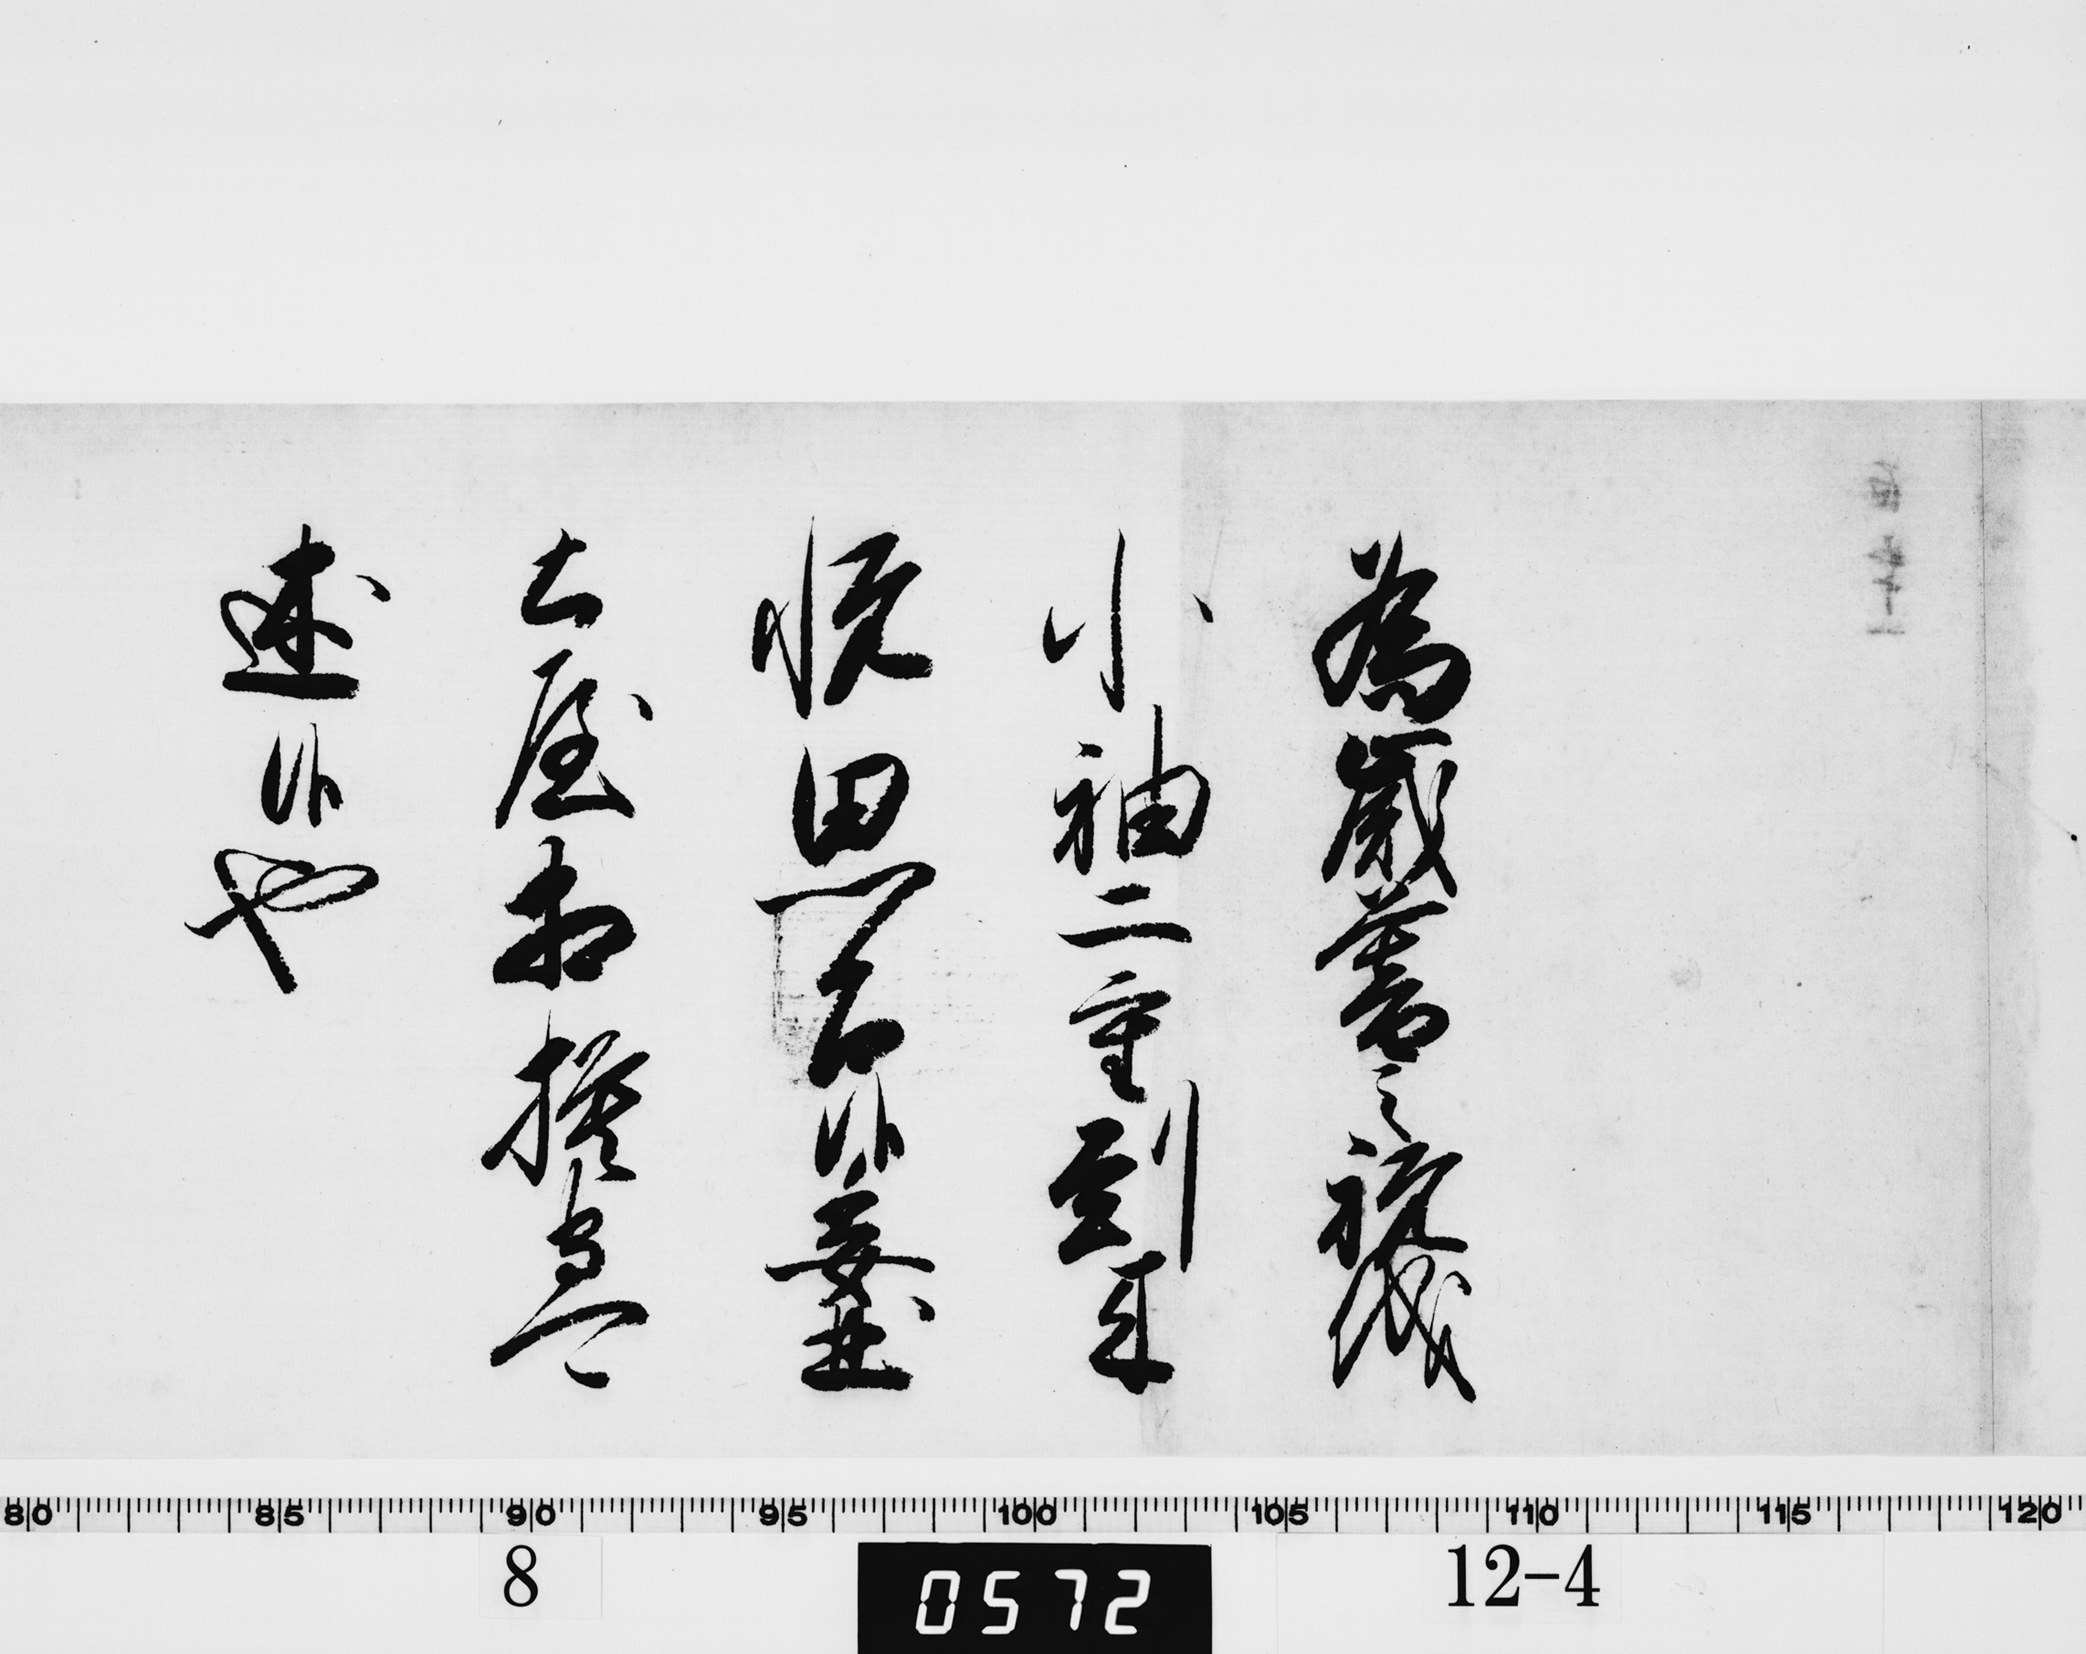 為歳暮之祝儀
小袖二重到来
悦思召候委曲
土屋相模守可
述候也
80 85 90 95 100 105 110 115 120
8 0572 12-4